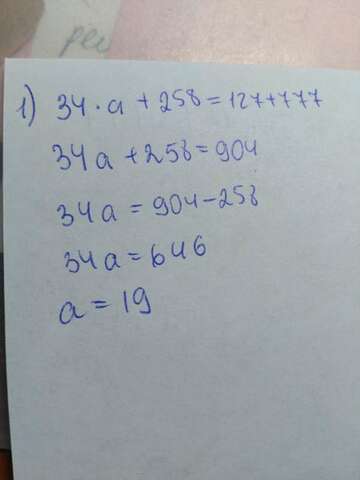 1) 34 · a + 258 = 127 + 777
34a + 258 = 904
34a = 904 - 258
34a = 646
a = 19